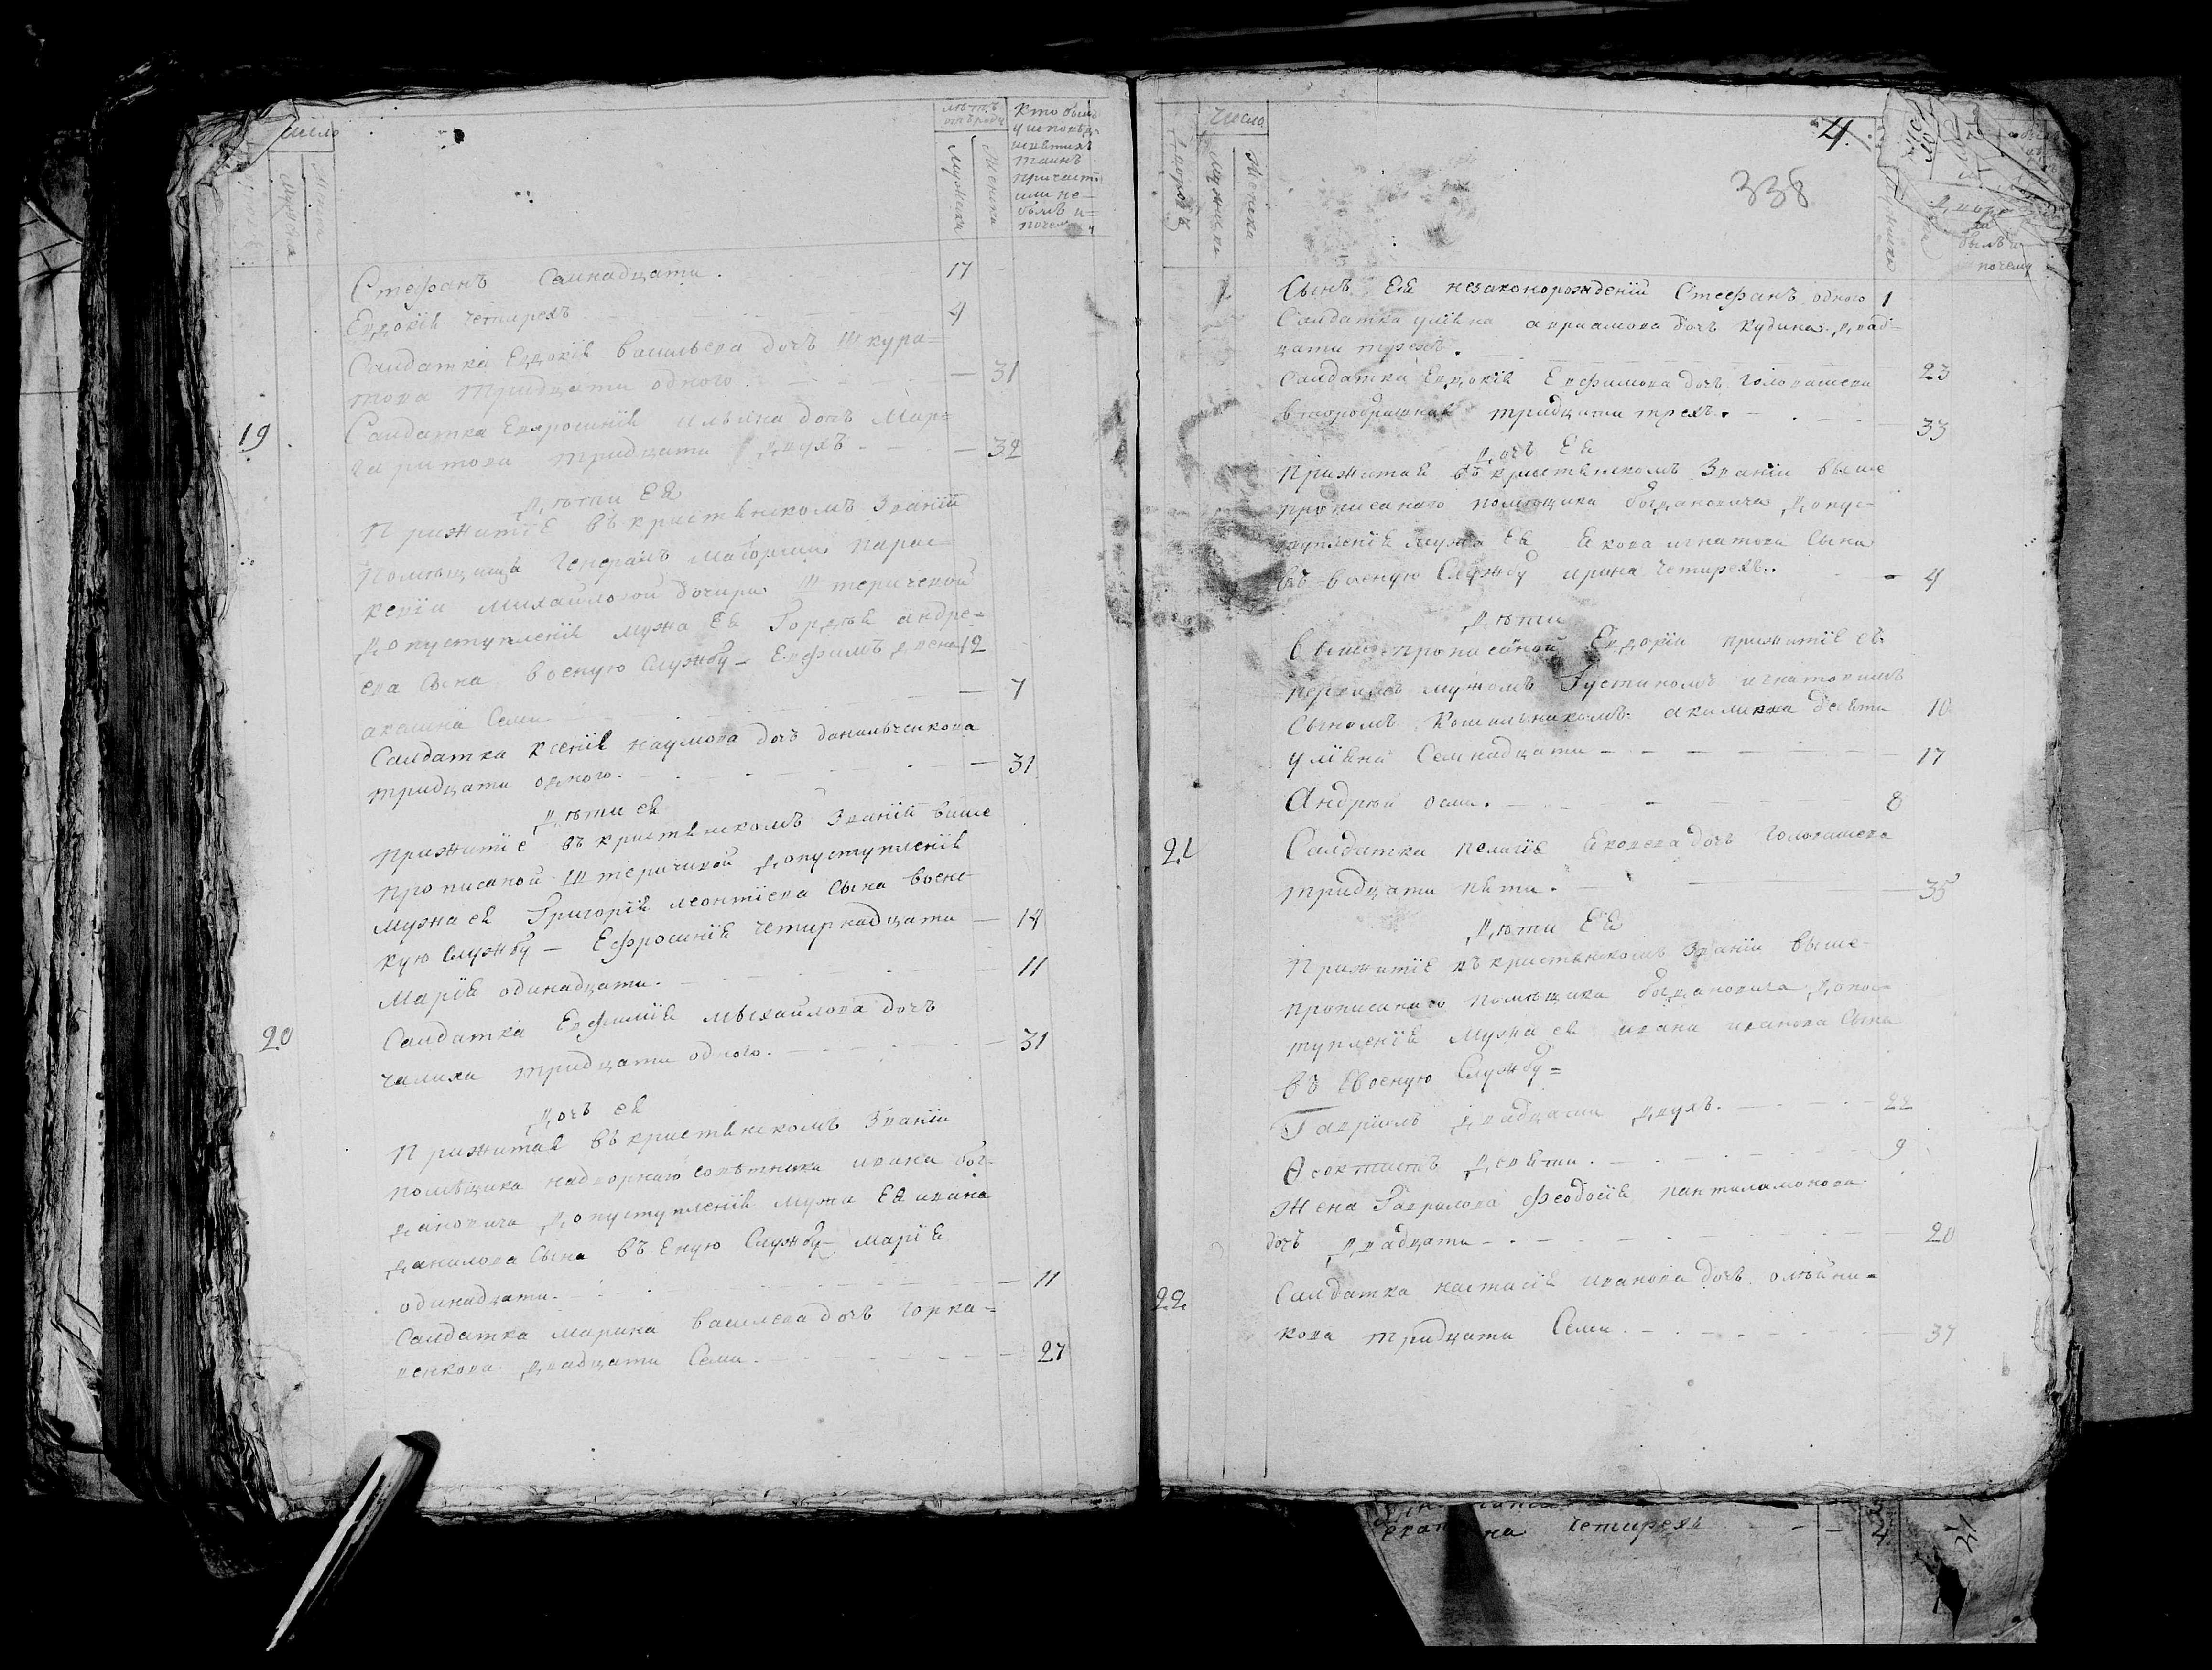 число
мужеска
женска
лѣтъ
отъ роду
мужеска
женска
Кто былъ
у исповѣди
святыхъ
таинъ
причастія
или не
былъ и
почему
Стефанъ Семнадцати. 17
Евдокія четирехъ 4
Салдатка Евдокія васильева дочь Шкура=
това Тридцати одного. 31
19. Салдатка Евросинія ильина дочь Мар=
гаритова тридцати двухъ 32
Дѣти Ея
Прижитіе въ крист&янскомъ Званіи
Помѣщици Генералъ Маіорши Парас=
кевіи Михайловой дочири Штеричевой
до вступленія мужа Ея Гордѣя андре=
ева Сына воену Службу Евфимъ двена 12
акилина Семи 7
Салдатка ксенія наумова дочь данильченкова
тридцати одного. 31
Дѣти ея
Прижитіе въ кристянскомъ Званіи више
прописаной Штеричивой до вступленія
мужа ея Григорія леонтіева Сына воене
кую Службу Ефросинія Четирнадцати 14
Марія одинадцати. 11
20 Салдатка Евфимія михайлова дочь
чалиха тридцати одного. 31
Дочь ея
Прижитая въ кристянскомъ Званіи
помѣщика надворнаго совѣтника ивана бог=
дановича до вступленія мужа Ея ивана
данилова Сына въ Еную Службу Марія
одинадцати. 11
Салдатка Марина василева дочь горка=
венкова двадцати Семи. 27
4.
338
Число
дворовъ
мужеска
женска
былъ и
почему
Сынъ Ея незаконорожденій Стефанъ одного 1
Салдатка уліяна авраамова дочь Кудина двад=
цати трехъ. 23
Салдатка Евдокія Евфимова дочь голованева
второбрачная тридцати трехъ. 33
Дочь Ея
Прижитая въ кристянскомъ Званіи више
прописаного помѣщика богдановича до вус=
тупленія мужа Ея Якова игнатова Сына
въ военую Службу ирина четирехъ. 4
Дѣти
вишепрописаной Евдокіи прижитіе съ
первимъ мужомъ Густиномъ игнатовимъ
Сыномъ акилина десяти 10
уліяна Семнадцати 17
Андрей осми. 8
21 Салдатка пелагія Яковева дочь голованева
тридцати пяти. 35
Дѣти Ея
Прижитіе въ кристянскомъ Званіи више-
прописанаго помѣщика богдановича до вос=
тупленія мужа ея ивана иванова Сына
въ военую Службу=
Гавриилъ двадцати двухъ. 22
Ѳеоктистъ девяти. 9
Жена Гаврилова Феодосія пантилимонова
дочь двадцати 20
22. Салдатка настасія иванова дочь олейни=
кова тридцати Семи. 37
четирехъ 4